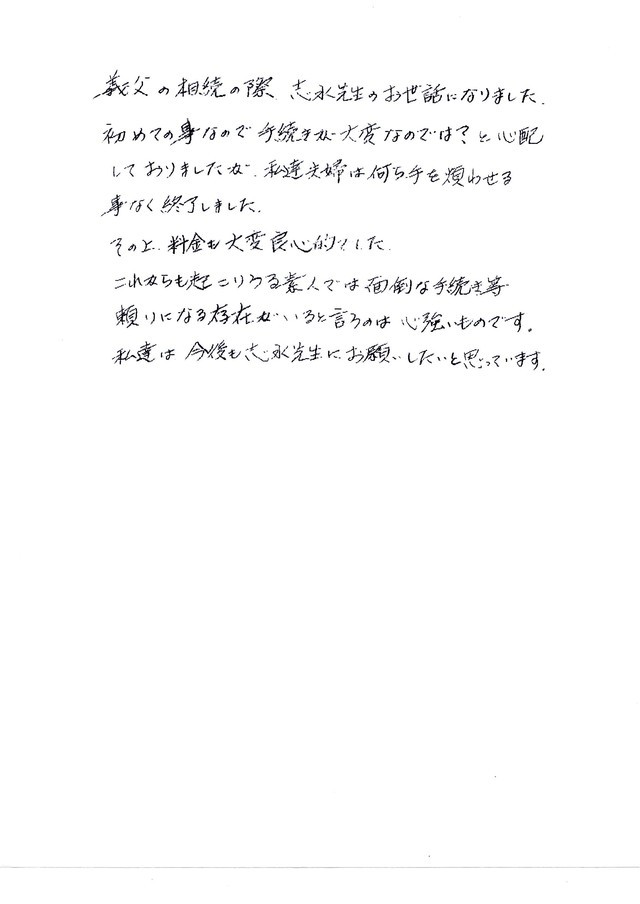 義父の相続の際、志永先生のお世話になりました。
初めての事なので手続きが大変なのでは？と心配
しておりましたが、私達夫婦は何ら手を煩わせる
事なく終了しました。
その上、料金も大変良心的でした。
これからも起こりうる素人では面倒な手続き等
頼りになる存在がいると言うのは心強いものです。
私達は今後も志永先生にお願いしたいと思っています。